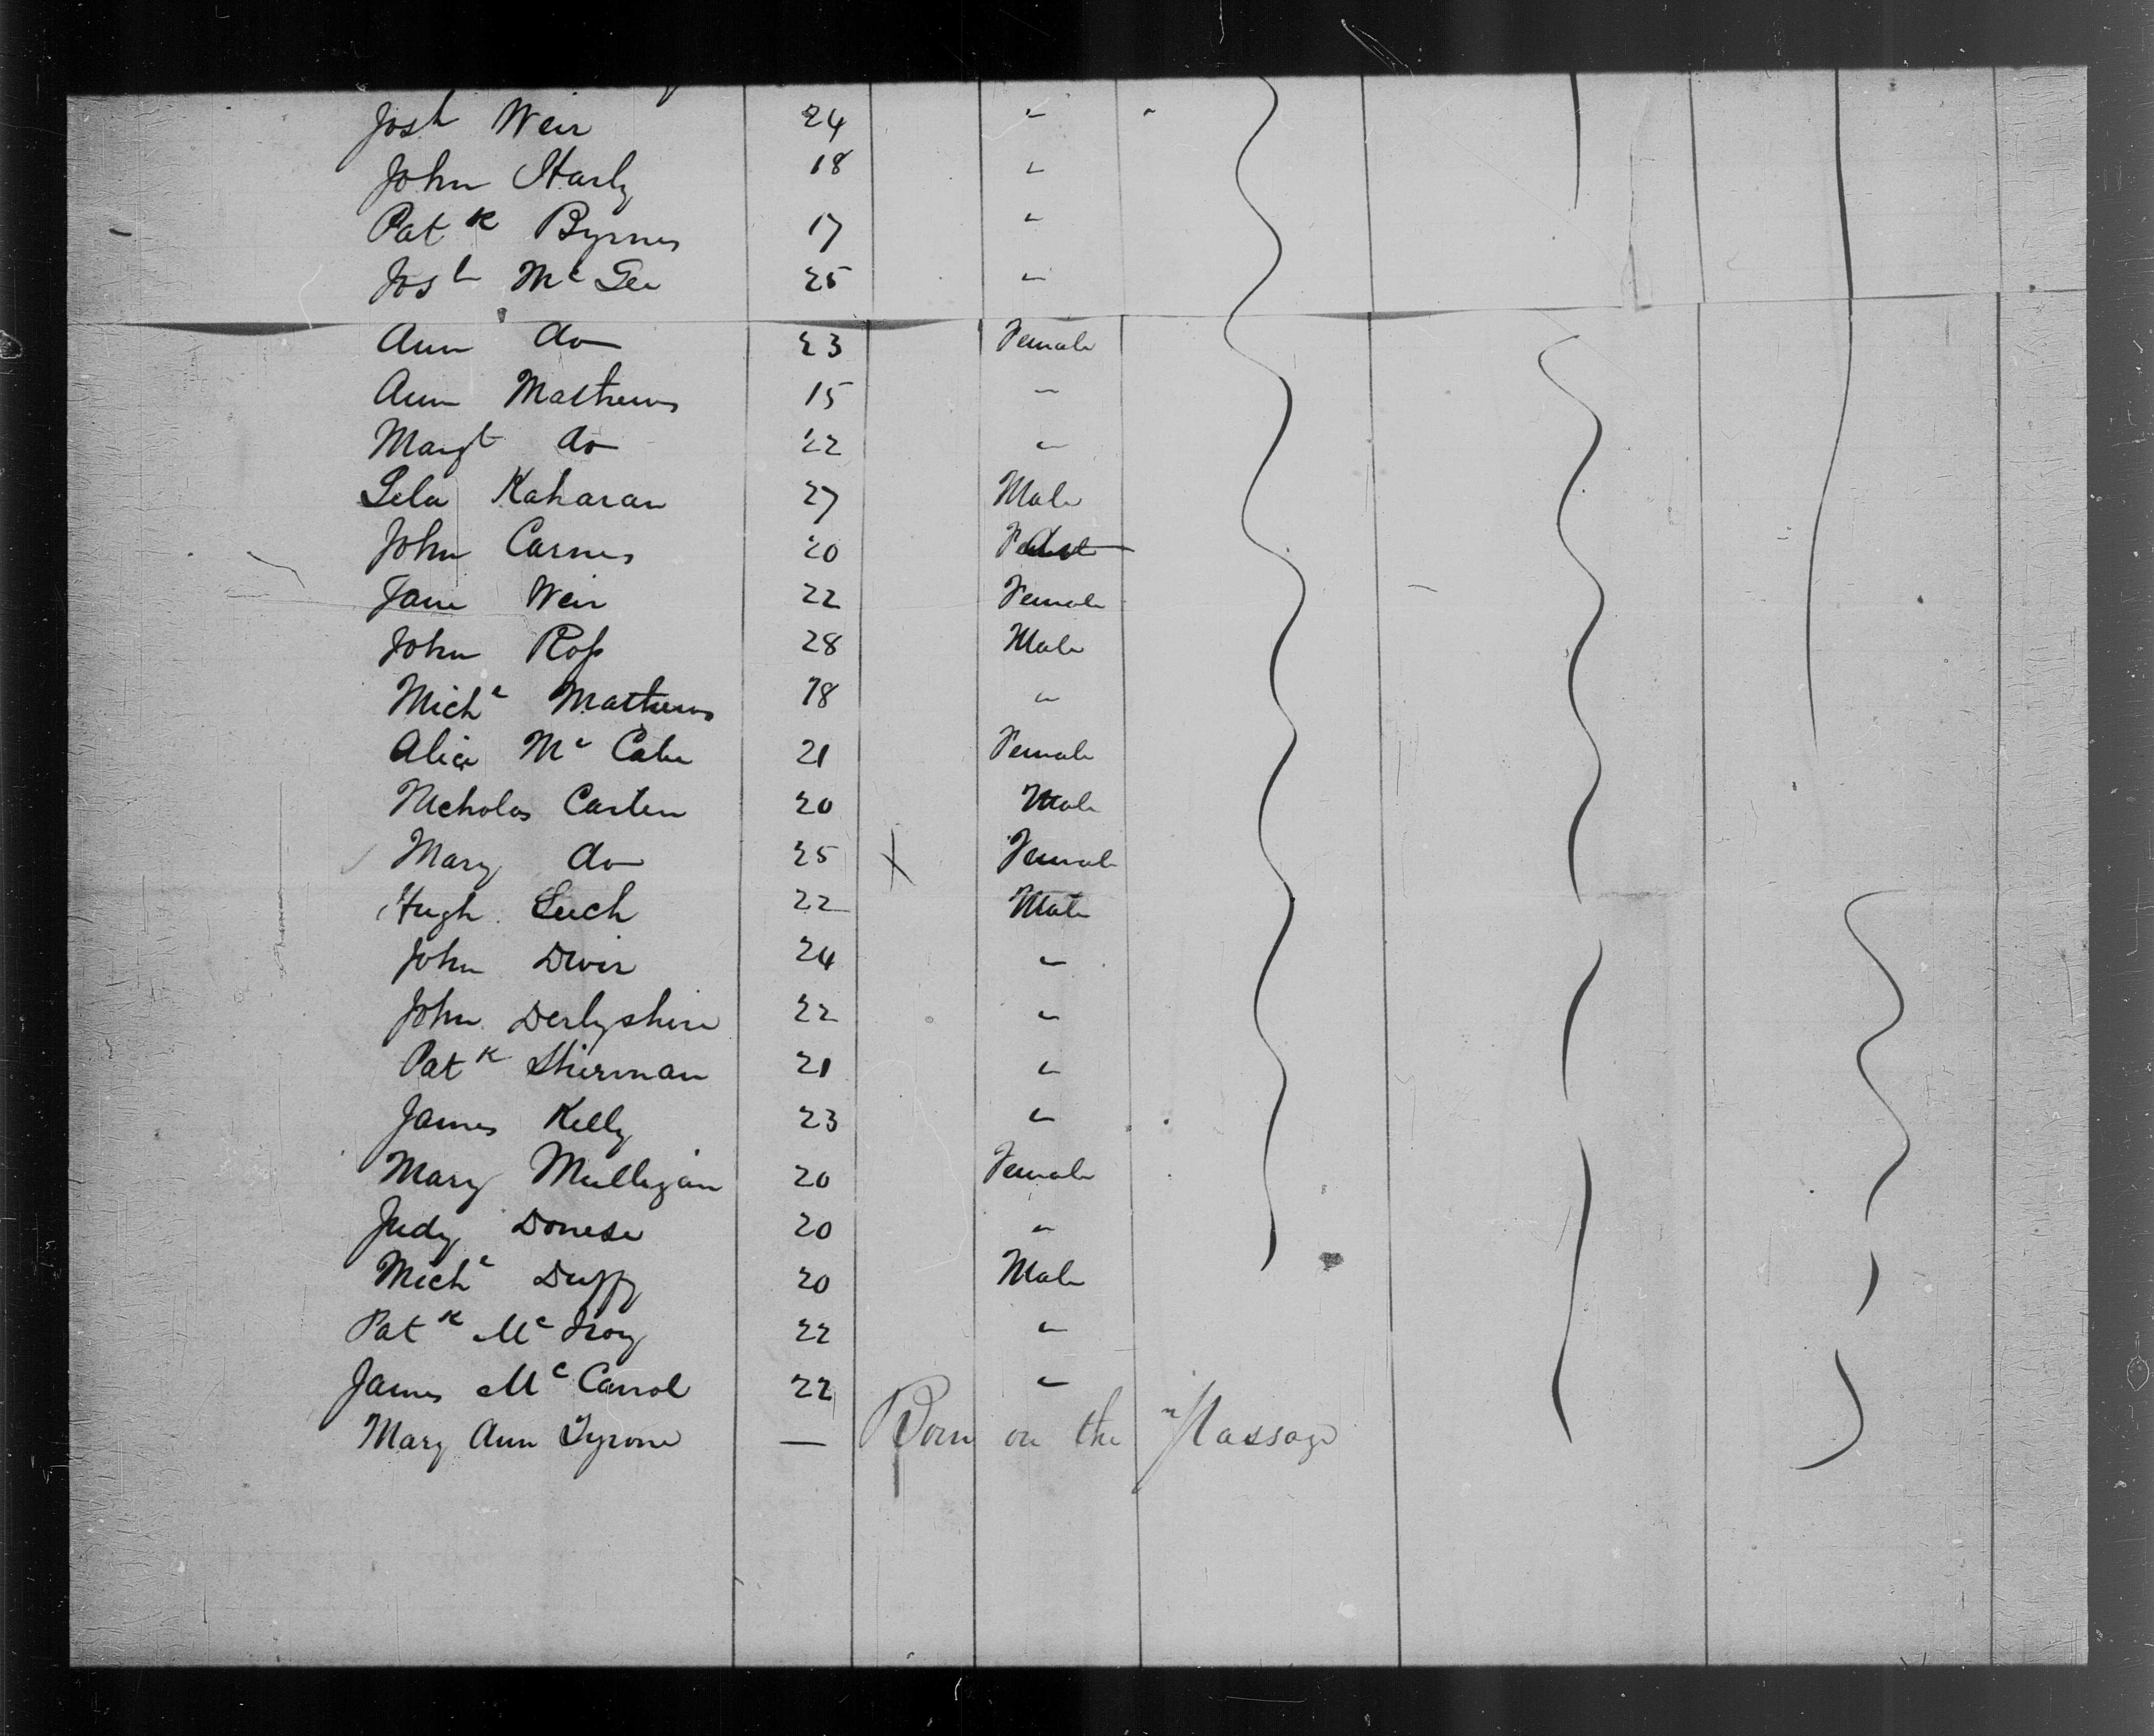 Josh Weir 24 "
John Harly 18 "
Patk Byrnes 17 "
Josh McGee 25 "
Ann do 23 Female
Ann Mathews 15 "
Margt do 22 "
Kaharan 27 Male
John Carnes 20 do
Jane Weir 22 Female
John Ross 28 Male
Michl Mathews 18 "
Alice McCabe 21 Female
Nicholas Carten 20 Male
Mary do 25 X Female
Hugh Leech 22 Male
John 24 "
John Derbyshire 22 "
Patk Shirman 21 "
James Kelly 23 "
Mary Mulligan 20 Female
Judy Donese 20 "
Michl Duffy 20 Male
Patk 22 "
James McCarrol 22 "
Mary Ann Tyrone — Born on the Passage